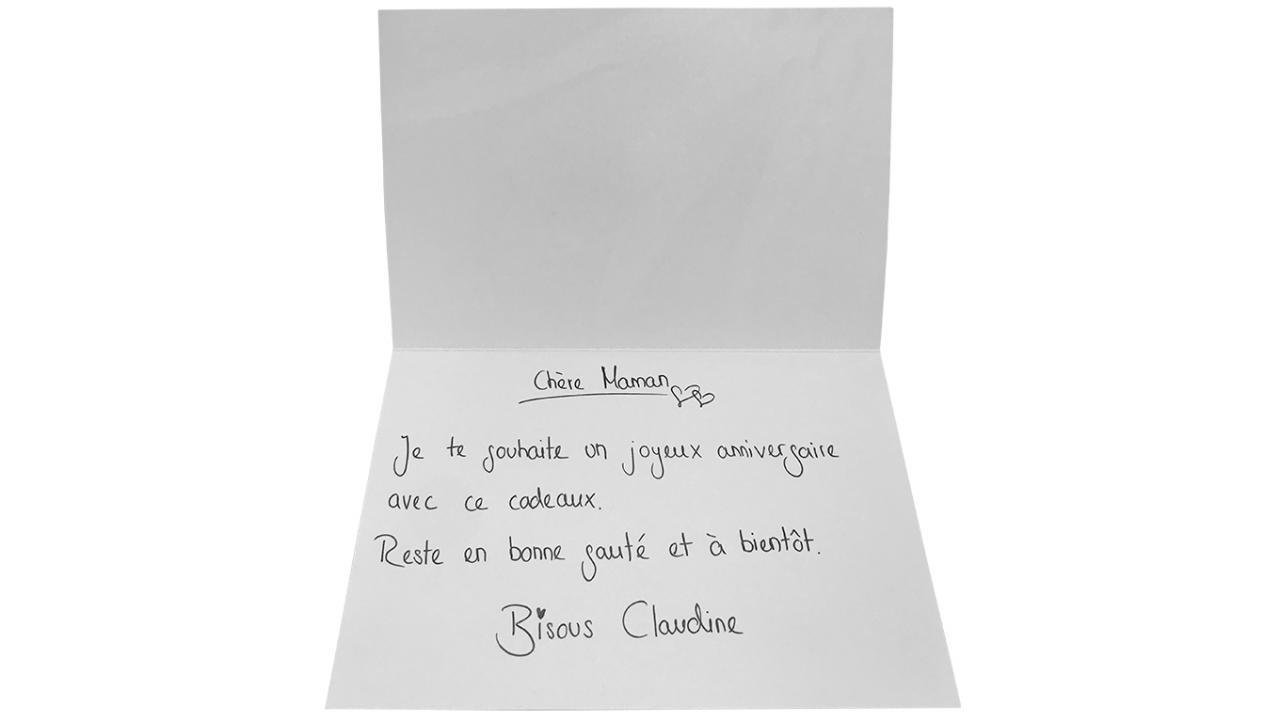 Chère Maman
Je te souhaite un joyeux anniversaire
avec ce cadeaux.
Reste en bonne santé et à bientôt.
Bisous Claudine